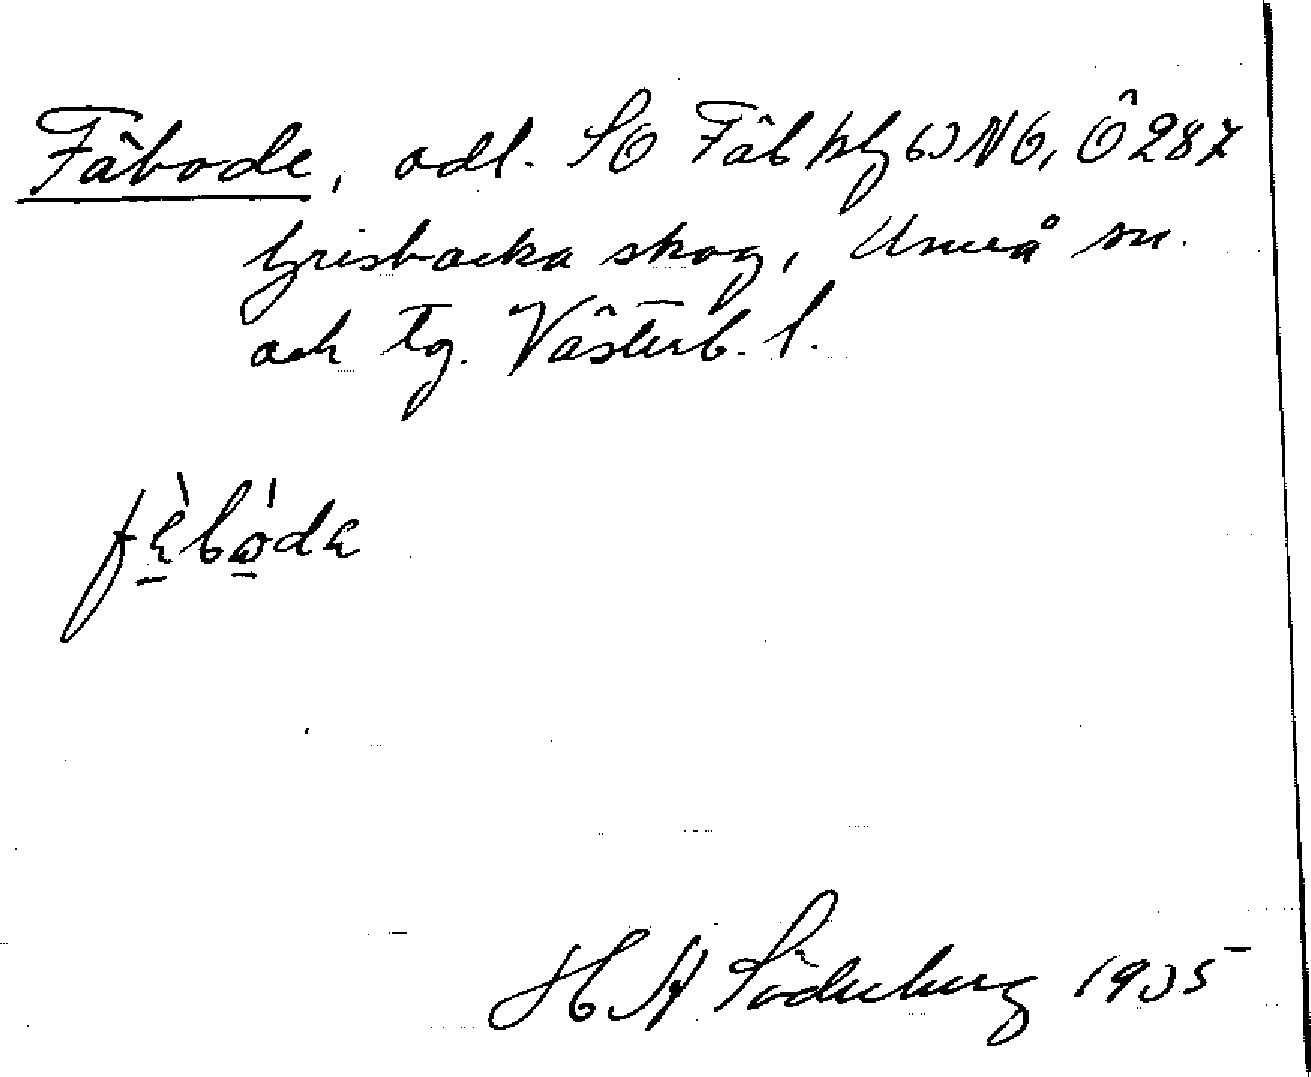 Fäbode, odl. SO Fäb pkg 63 NO, Ö 287
Grisbacka skog, Umeå sn.
och tg. Västerb. l.
fɛ̀bo̍da
H A Söderberg 1935